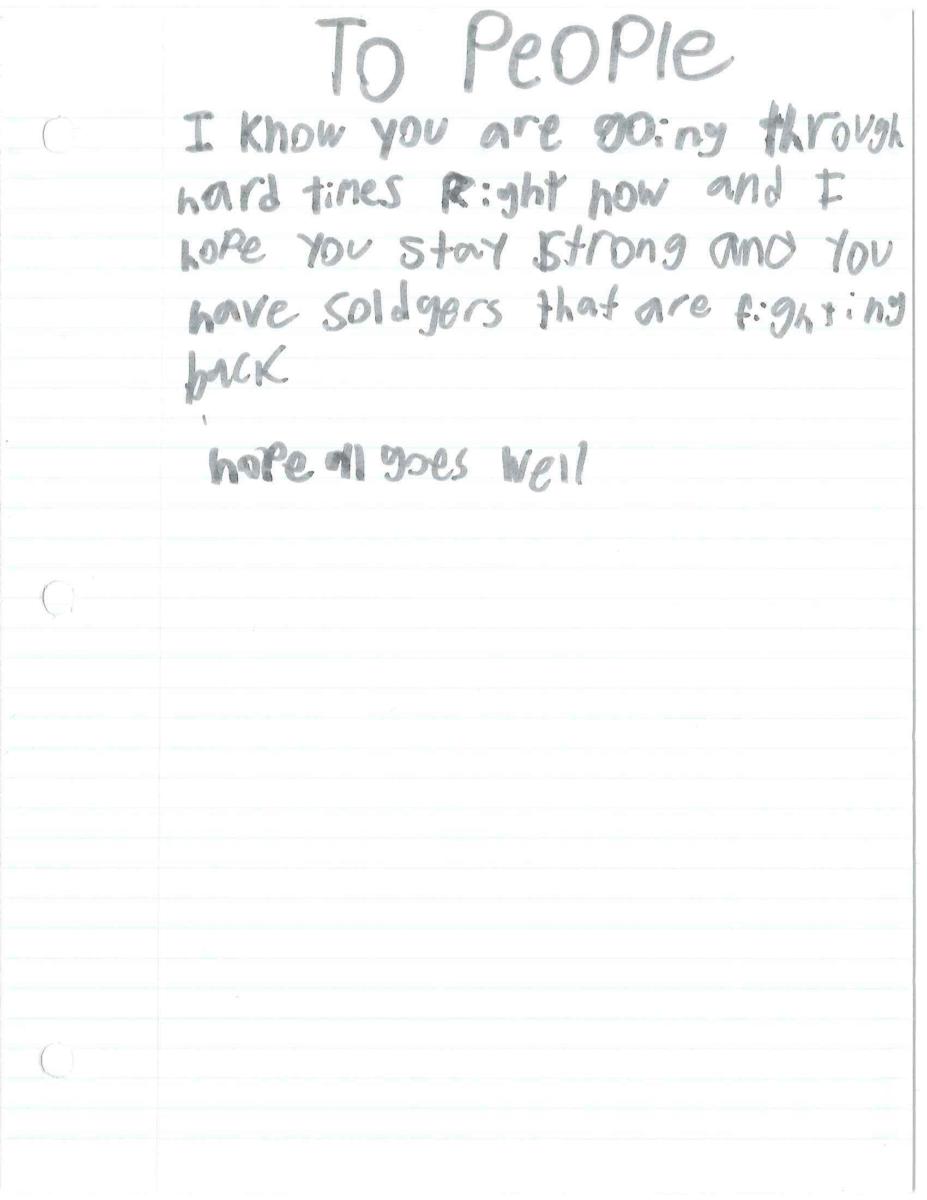 To People
I know you are going through
hard times Right now and I
hope you stay strong and you
have soldgers that are fighting
back
hope all goes well